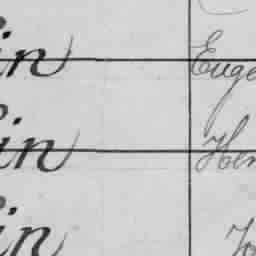 in Euge
in Hen
in Jo